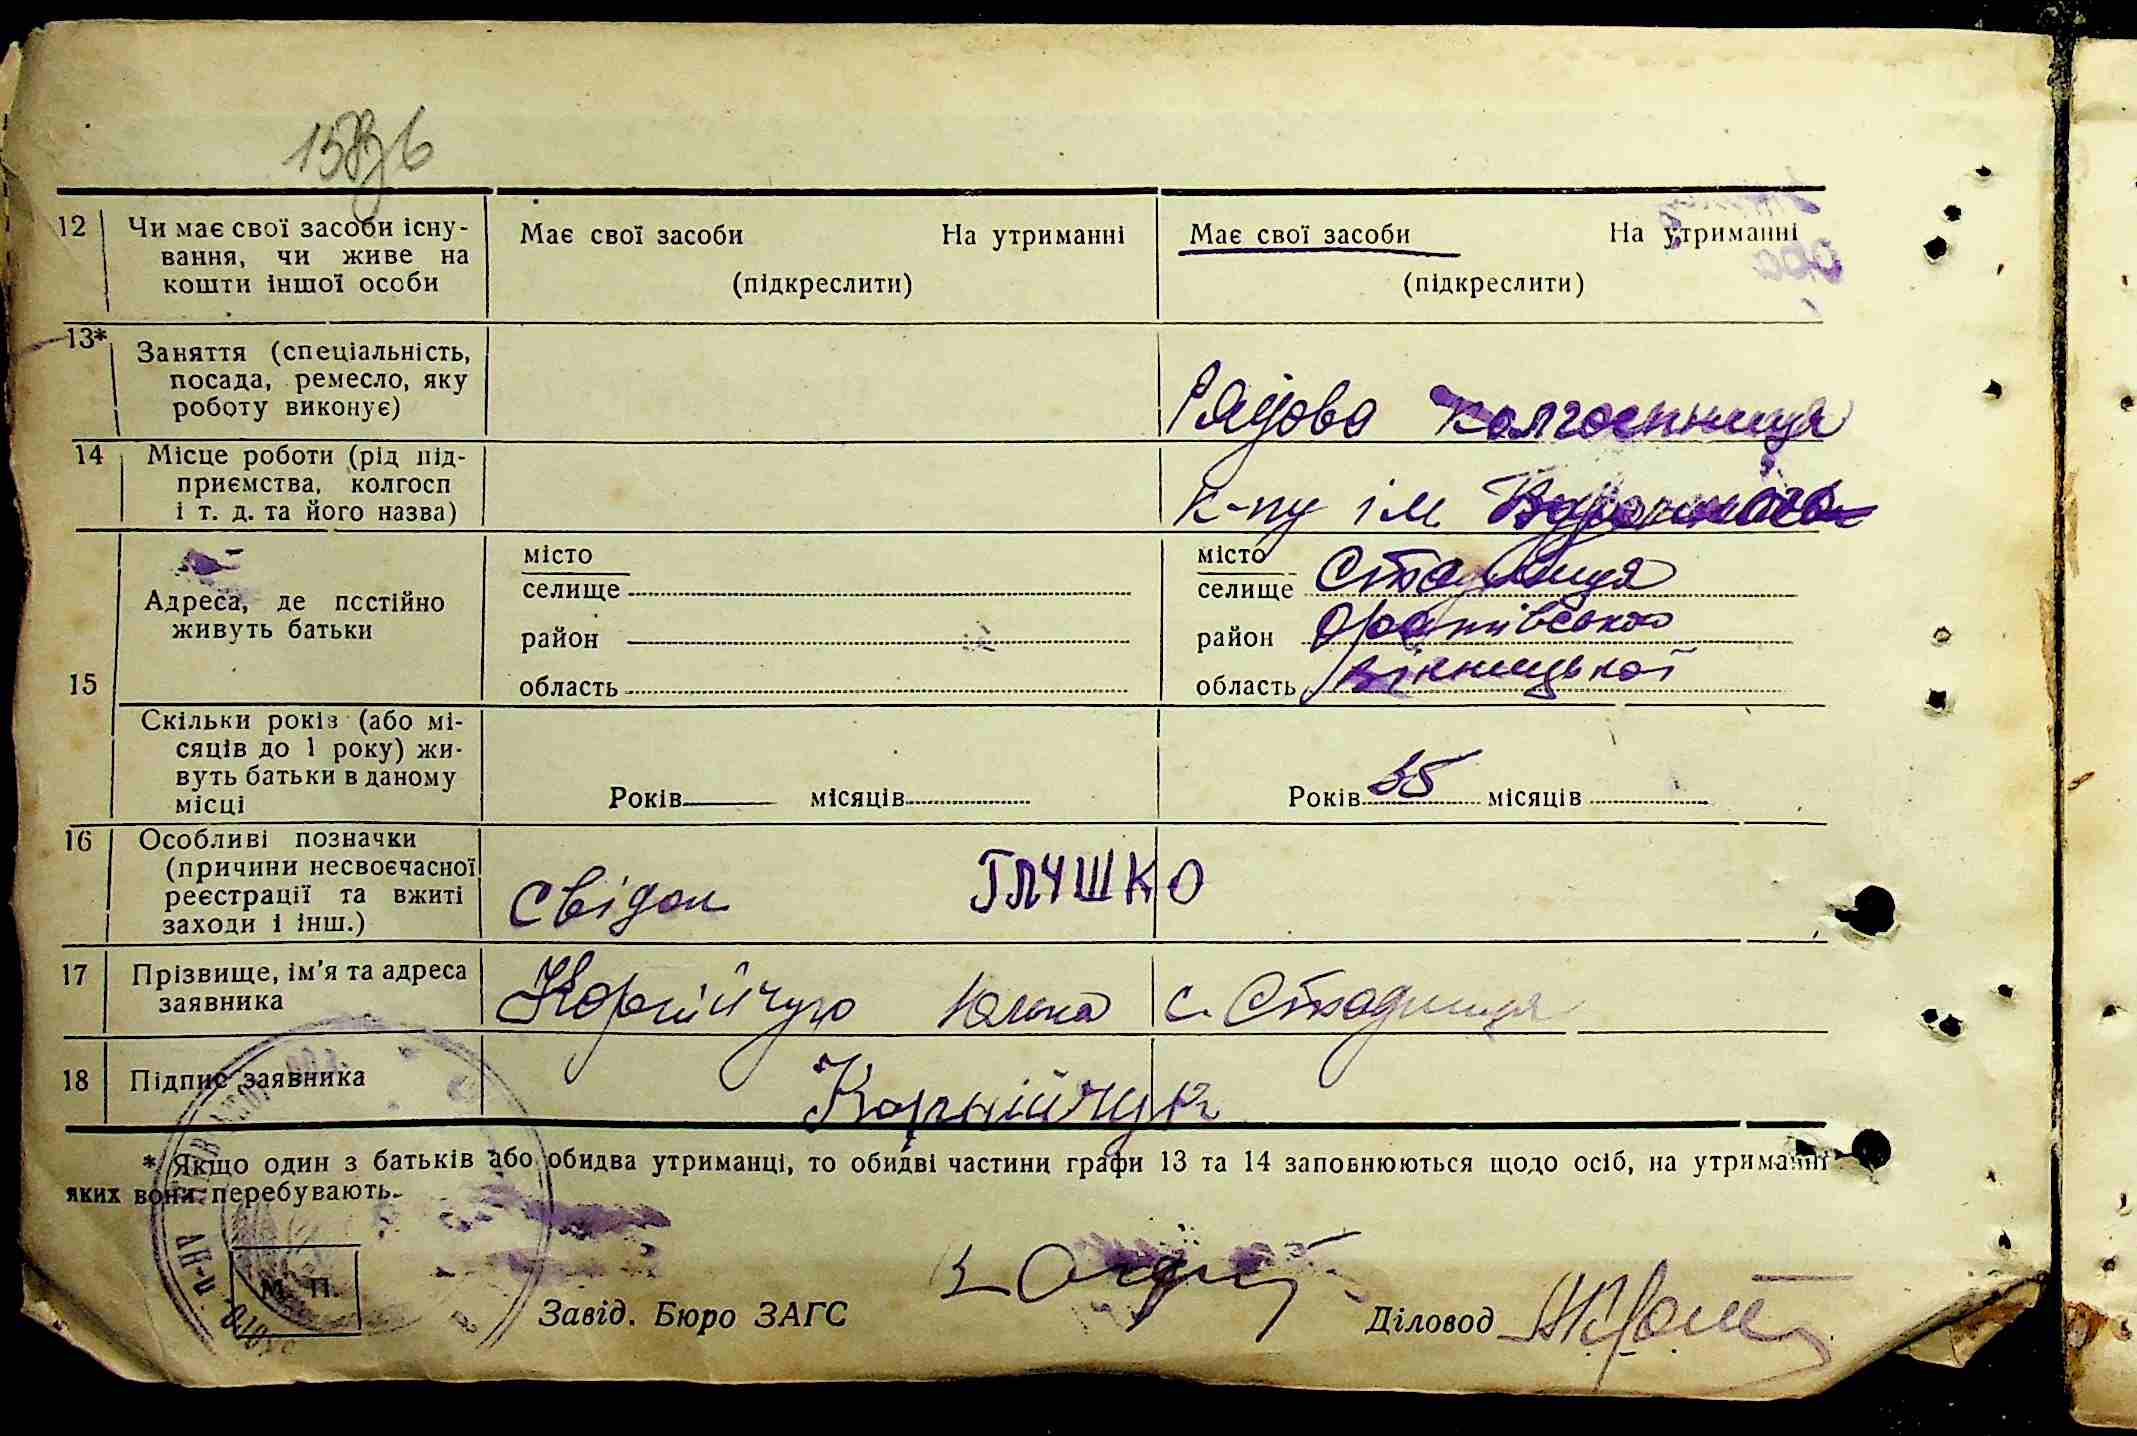 12 Чи має свої засоби існу-
вання, чи живе на
кошти іншої особи
Має свої засоби На утриманні
(підкреслити)
Має свої засоби На утриманні
(підкреслити)
13* Заняття (спеціальність,
посада, ремесло, яку
роботу виконує)
Рядова колгоспниця
14 Місце роботи (рід під-
приємства, колгосп
і т. д. та його назва)
к-пу ім
15 Адреса, де постійно
живуть батьки
місто
селище
район
область
місто
селище Стадниця
район Оратівського
область Вінницької
Скільки років (або мі-
сяців до 1 року) жи-
вуть батьки в даному
місці
Років місяців
Років 35 місяців
16 Особливі позначки
(причини несвоєчасної
реєстрації та вжиті
заходи і інш.)
Свідок ГЛУШКО
17 Прізвище, ім'я та адреса
заявника
Корнійчук с. Стадниця
18 Підпис заявника
Корнійчук
* Якщо один з батьків або обидва утриманці, то обидві частини графи 13 та 14 заповнюються щодо осіб, на утриманні
яких вони перебувають.
М. П.
Завід. Бюро ЗАГС
Діловод